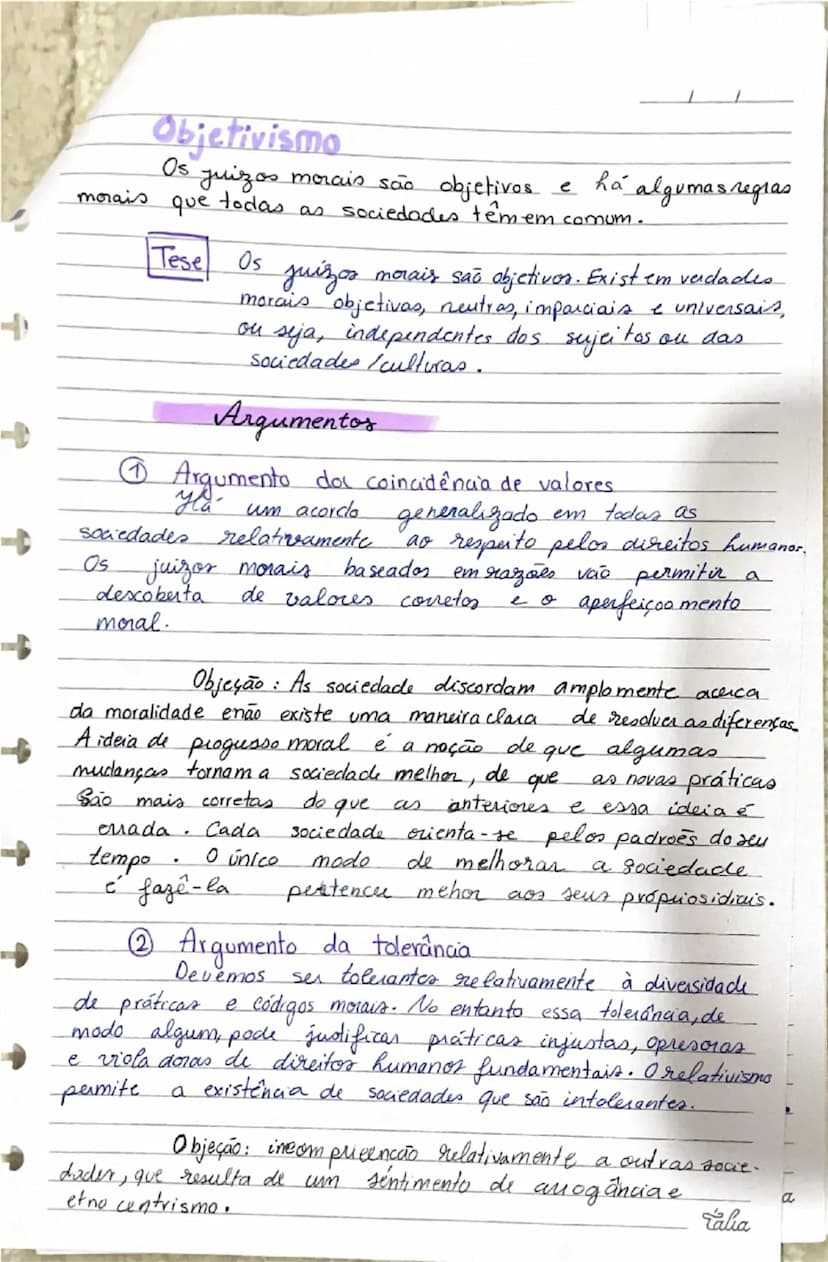 Objetivismo
Os juizos morais são objetivos e há algumas regras
morais que todas as sociedades têm em comum.
Tese
Os juízos morais são objetivos. Existem verdades
morais objetivas, neutras, imparciais e universais,
ou seja, independentes dos sujeitos ou das
sociedades/culturas.
Argumentos
① Argumento da coincidência de valores
Há um acordo generalizado em todas as
sociedades relativamente ao respeito pelos direitos humanos.
Os juizos morais baseados em razões vão permitir a
descoberta de valores corretos e o aperfeiçoamento
moral.
Objeção: As sociedade discordam amplamente acerca
da moralidade e não existe uma maneira clara de resolver as diferenças.
A ideia de progresso moral é a noção de que algumas
mudanças tornam a sociedade melhor, de que as novas práticas
São mais corretas do que as anteriores e essa ideia é
errada. Cada sociedade orienta-se pelos padroẽs do seu
tempo. O único modo de melhorar a sociedade
é fazê-la pertencer mehor aos seus própriosidiais.
② Argumento da tolerância
Devemos ser tolerantes relativamente à diversidade
de práticas e códigos morais. No entanto essa tolerância, de
modo algum, pode justificar práticas injustas, opresoras
e violadoras de direitos humanos fundamentais. O relativismo
permite a existência de sociedades que são intolerantes.
Objeção: incompreencão relativamente a outras socie-
dades, que resulta de um sentimento de arrogância e
etnocentrismo.
a
Tália